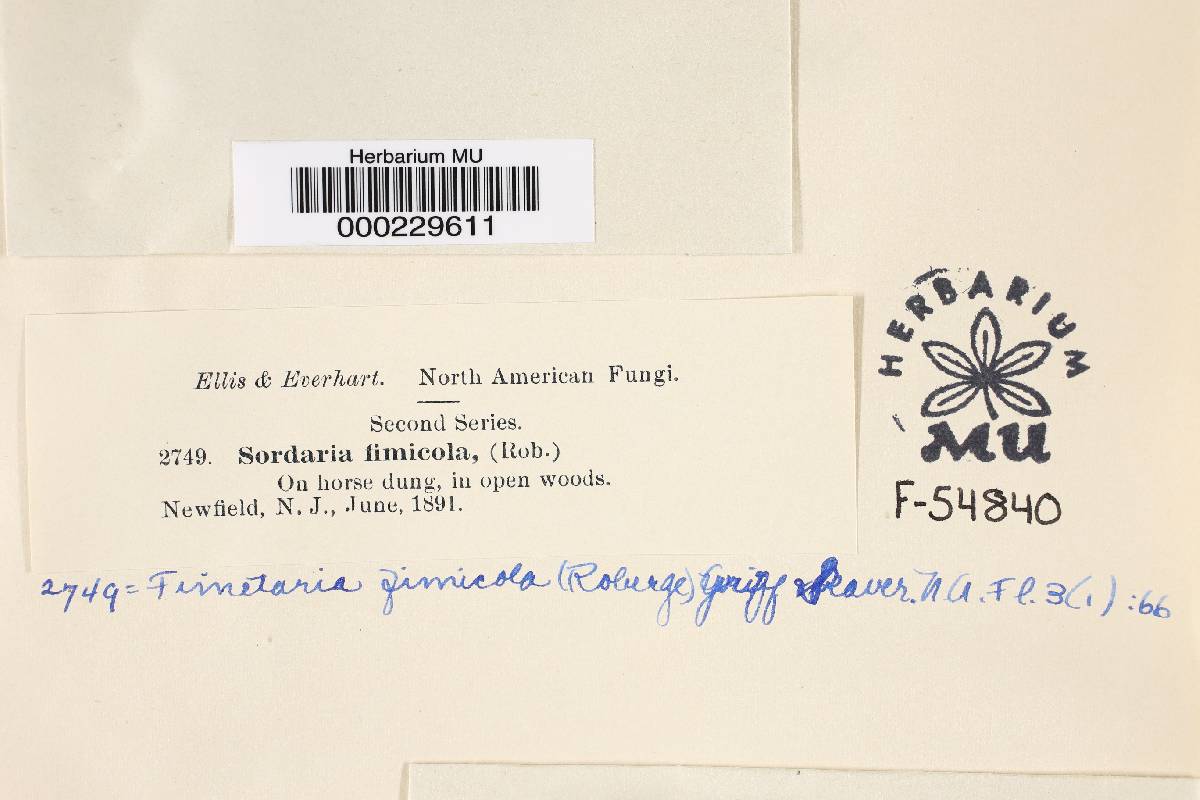 Herbarium MU
000229611
Ellis & Everhart. North American Fungi.
Second Series.
2749. Sordaria fimicola, (Rob.)
On horse dung, in open woods.
Newfield, N. J., June, 1891.
HERBARIUM
MU
F-54840
2749 = Fimetaria fimicola (Roberge) Griff & Seaver. N.A. Fl. 3(1) :66